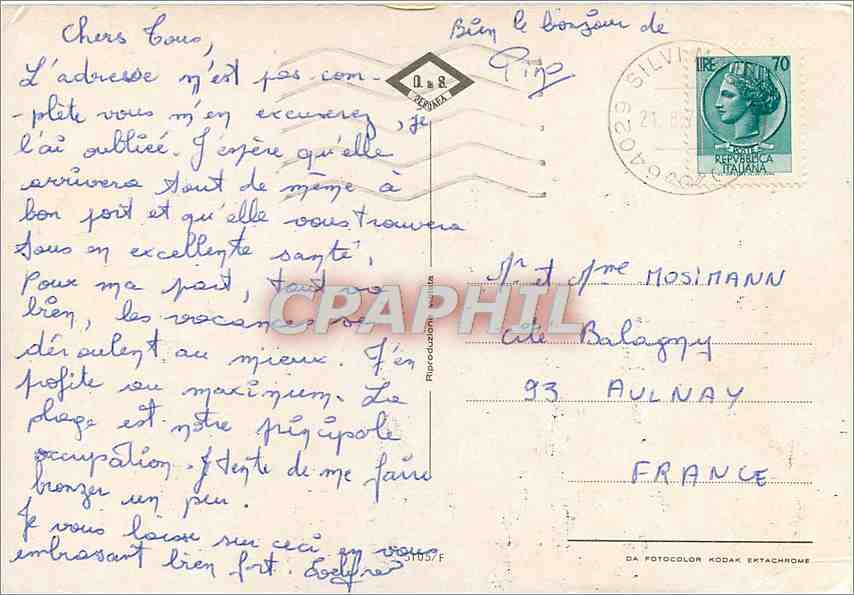 Chers Tous,
L'adresse n'est pas com-
-plète vous m'en excuserez, je
l'ai oubliée. J'espère qu'elle
arrivera tout de même à
bon port et qu'elle vous trouvera
tous en excellente santé.
Pour ma part, tout va
bien, les vacances se
déroulent au mieux. J'en
profite au maximum. La
plage est notre principale
occupation. J tente de me faire
bronzer un peu.
Je vous laisse sur ceci en vous
embrassant bien fort.
Bien le bonjour de
Pino
D. e S.
PESCARA
64029 SILVI
LIRE 70
POSTE
REPVBBLICA
ITALIANA
Mr et Mme MOSIMANN
Cité Balagny
93 AULNAY
FRANCE
Riproduzione vietata
CPAPHIL
DA FOTOCOLOR KODAK EKTACHROME